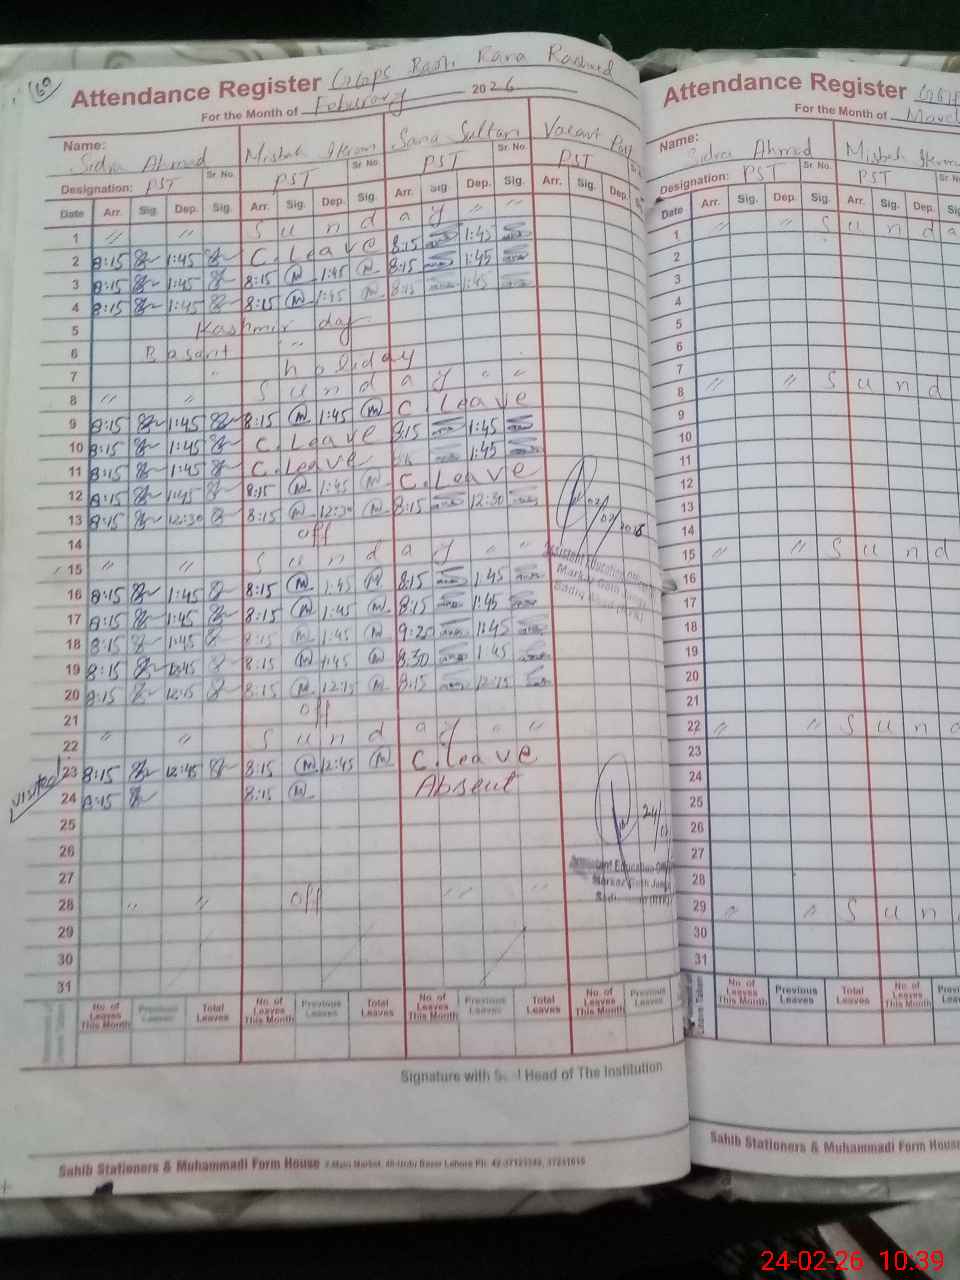 60
Attendance Register GGPS Rakh Rana Rasheed
For the Month of February 2026
Name: Sidra Ahmad Misbah Ikram Sana Sultan Vacant Post
Designation: PST Sr No. PST Sr No. PST Sr No. PST
Date Arr. Sig. Dep. Sig. Arr. Sig. Dep. Sig. Arr. Sig. Dep. Sig. Arr. Sig. Dep.
1 〃 〃 S u n d a y 〃 〃
2 8:15 1:45 C. Leave 8:15 1:45
3 8:15 1:45 8:15 1:45 8:15 1:45
4 8:15 1:45 8:15 1:45 8:15 1:45
5 Kashmir day
6 Basant 〃
7 〃 holiday
8 〃 〃 S u n d a y 〃 〃
9 8:15 1:45 8:15 1:45 C. Leave
10 8:15 1:45 C. Leave 8:15 1:45
11 8:15 1:45 C. Leave 1:45
12 8:15 1:45 8:15 1:45 C. Leave
13 8:15 12:30 8:15 12:30 8:15 12:30
14 off
15 〃 〃 S u n d a y 〃 〃
16 8:15 1:45 8:15 1:45 8:15 1:45
17 8:15 1:45 8:15 1:45 8:15 1:45
18 8:15 1:45 8:15 1:45 9:20 1:45
19 8:15 8:15 1:45 8:30 1:45
20 8:15 12:15 8:15 12:15 8:15 12:15
21 off
22 〃 〃 S u n d a y 〃 〃
visited 23 8:15 12:45 8:15 12:45 C. Leave
24 8:15 8:15 Absent
25
26
27
28 〃 〃 off 〃 〃
29
30
31
Assistant Education Officer
Markaz
24/
Assistant Education Officer
Markaz
No. of Leaves This Month Previous Leaves Total Leaves No. of Leaves This Month Previous Leaves Total Leaves No. of Leaves This Month Previous Leaves Total Leaves No. of Leaves This Month Previous Leaves
Signature with Seal Head of The Institution
Sahib Stationers & Muhammadi Form House
Attendance Register
For the Month of
Name: Sidra Ahmad Misbah Ikram
Designation: PST Sr No. PST Sr No.
Date Arr. Sig. Dep. Sig. Arr. Sig. Dep.
1 〃 〃 S u n d a
2
3
4
5
6
7
8 〃 〃 S u n d
9
10
11
12
13
14
15 〃 〃 S u n d
16
17
18
19
20
21
22 〃 〃 S u n d
23
24
25
26
27
28
29 〃 〃 S u n
30
31
No. of Leaves This Month Previous Leaves Total Leaves No. of Leaves This Month
Sahib Stationers & Muhammadi Form House
24-02-26 10:39